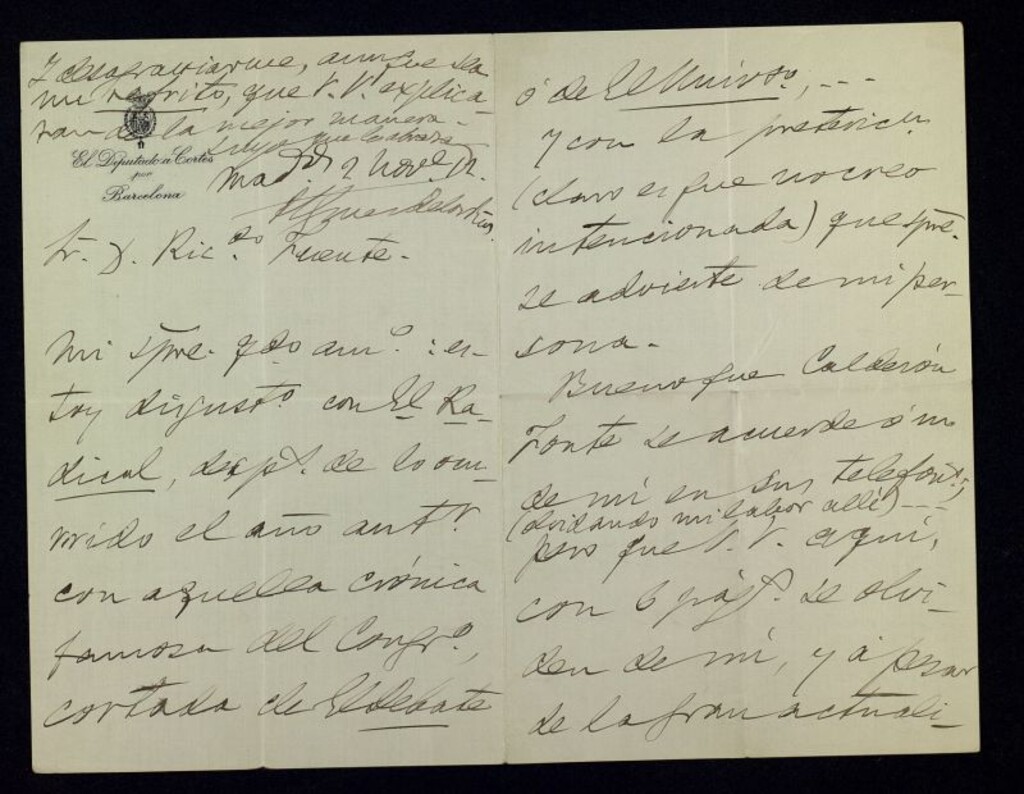 y desagraviarme, aunque sea
mi refrito, que V.V. explica-
ran de la mejor manera -
suyo que le abraza
El Diputado a Cortes
por
Barcelona
Mad.d 2 Nov.e 12.
Sr. D. Ric.do Fuente.
Mi spre. qdo am.o: es-
toy disgust.o con El Ra-
dical, desp.s de lo ocu-
rrido el año ant.r
con aquella crónica
famosa del Congr.o,
cortada de El Debate
ó de El Univso., ---
y con la preterición
(claro es que no creo
intencionada) que spre.
se advierte de mi per-
sona.
Bueno que Calderón
Fonte se acuerde ó no
de mí en sus telefon.s,
(olvidando mi labor allí) ---
pero que V.V. aquí,
con 6 pág.s se olvi-
den de mí, y á pesar
de la gran actuali-